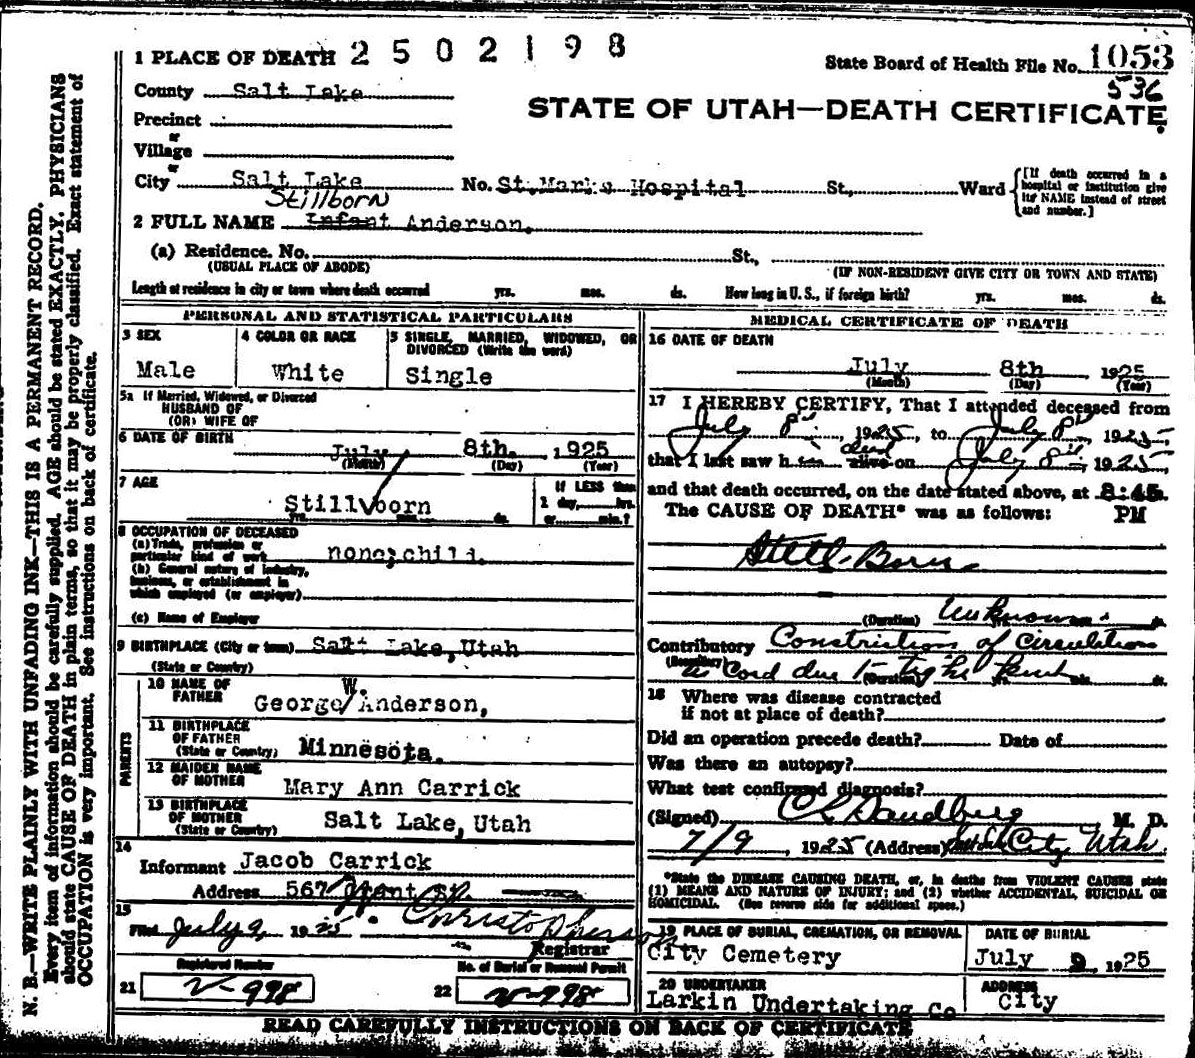 1 PLACE OF DEATH 2 5 0 2 1 9 8
State Board of Health File No. 1053
536
County Salt Lake
STATE OF UTAH—DEATH CERTIFICATE
Precinct
or
Village
or
City Salt Lake No. St. Marks Hospital St., Ward
[If death occurred in a
hospital or institution give
its NAME instead of street
and number.]
Stillborn
2 FULL NAME Infant Anderson.
(a) Residence. No. St.,
(USUAL PLACE OF ABODE) (IF NON-RESIDENT GIVE CITY OR TOWN AND STATE)
Length of residence in city or town where death occurred yrs. mos. ds. How long in U. S., if foreign birth? yrs. mos. ds.
PERSONAL AND STATISTICAL PARTICULARS
3 SEX
Male
4 COLOR OR RACE
White
5 SINGLE, MARRIED, WIDOWED, OR
DIVORCED (Write the word)
Single
5a If Married, Widowed, or Divorced
HUSBAND OF
(OR) WIFE OF
6 DATE OF BIRTH
July 8th. , 1925
(Month) (Day) (Year)
7 AGE
Stillborn
yrs. mos. ds.
If LESS than
1 day, hrs.
or min.?
8 OCCUPATION OF DECEASED
(a) Trade, profession or
particular kind of work none; child.
(b) General nature of industry,
business, or establishment in
which employed (or employer)
(c) Name of Employer
9 BIRTHPLACE (City or town) Salt Lake, Utah
(State or Country)
PARENTS
10 NAME OF
FATHER
George W. Anderson,
11 BIRTHPLACE
OF FATHER
(State or Country) Minnesota.
12 MAIDEN NAME
OF MOTHER Mary Ann Carrick
13 BIRTHPLACE
OF MOTHER
(State or Country) Salt Lake, Utah
14
Informant Jacob Carrick
Address 567 Grant St.
15
Filed July 9, 1925 Christopherson
Registrar
Registered Number
21 V-998
No. of Burial or Removal Permit
22 V-998
MEDICAL CERTIFICATE OF DEATH
16 DATE OF DEATH
July 8th , 1925
(Month) (Day) (Year)
17 I HEREBY CERTIFY, That I attended deceased from
July 8th, 1925, to July 8th, 1925,
that I last saw him alive dead on July 8th, 1925,
and that death occurred, on the date stated above, at 8:45
The CAUSE OF DEATH* was as follows: PM
Still-Born
(Duration) Unknown ds.
Contributory Constriction of Circulation
(Secondary) in Cord due to tight knot
(Duration) yrs. mos. ds.
18 Where was disease contracted
if not at place of death?
Did an operation precede death? Date of
Was there an autopsy?
What test confirmed diagnosis?
(Signed) C L Sandberg M. D.
7/9 , 1925 (Address) Salt Lake City Utah.
*State the DISEASE CAUSING DEATH, or, in deaths from VIOLENT CAUSES state
(1) MEANS AND NATURE OF INJURY; and (2) whether ACCIDENTAL, SUICIDAL OR
HOMICIDAL. (See reverse side for additional space.)
19 PLACE OF BURIAL, CREMATION, OR REMOVAL
City Cemetery
DATE OF BURIAL
July 9 , 1925
20 UNDERTAKER
Larkin Undertaking Co
ADDRESS
City
READ CAREFULLY INSTRUCTIONS ON BACK OF CERTIFICATE
N. B.—WRITE PLAINLY WITH UNFADING INK—THIS IS A PERMANENT RECORD.
Every item of information should be carefully supplied. AGE should be stated EXACTLY. PHYSICIANS
should state CAUSE OF DEATH in plain terms, so that it may be properly classified. Exact statement of
OCCUPATION is very important. See instructions on back of certificate.